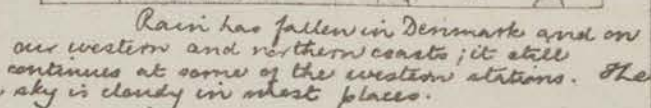 Rain has fallen in Denmark and on
our western and northern coasts; it still
continues at some of the western stations. The
sky is cloudy in most places.